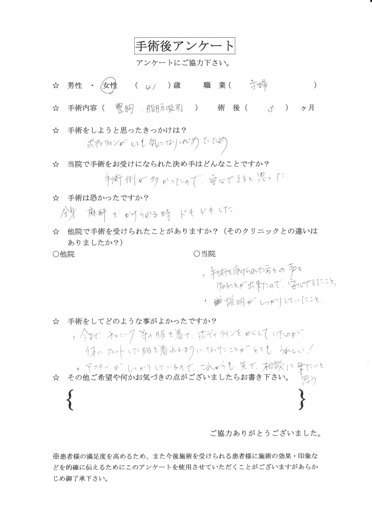 手術後アンケート
アンケートにご協力下さい。
☆ 男性 ・ 女性 ( 41 )歳 職 業( 主婦 )
☆ 手術内容( 豊胸 脂肪吸引 ) 術 後( 3 )ヶ月
☆ 手術をしようと思ったきっかけは?
ボディラインがとても気になりはじめたため
☆ 当院で手術をお受けになられた決め手はどんなことですか?
手術例が多かったので、安心できると思った
☆ 手術は恐かったですか?
全身麻酔をかけられる時ドキドキした
☆ 他院で手術を受けられたことがありますか?(そのクリニックとの違いは
ありましたか?)
○他院 ○当院
・手術を受けられた方との
ことが出来たので、安心できたこと。
・説明がしっかりしていたこと。
☆ 手術をしてどのような事がよかったですか?
・今まで チュニック等の服を着て、ボディラインをかくしていたのが
フィットした服を着れるようになったことがとてもうれしい!
・アフターがしっかりしているので、これからも 相談に来たいと
思う
☆ その他ご希望や何かお気づきの点がございましたらお書き下さい。
{ }
ご協力ありがとうございました。
※患者様の満足度を高めるため、また今後施術を受けられる患者様に施術の効果・印象な
どを的確に伝えるためにこのアンケートを使用させていただくことがございますがあらか
じめ御了承下さい。